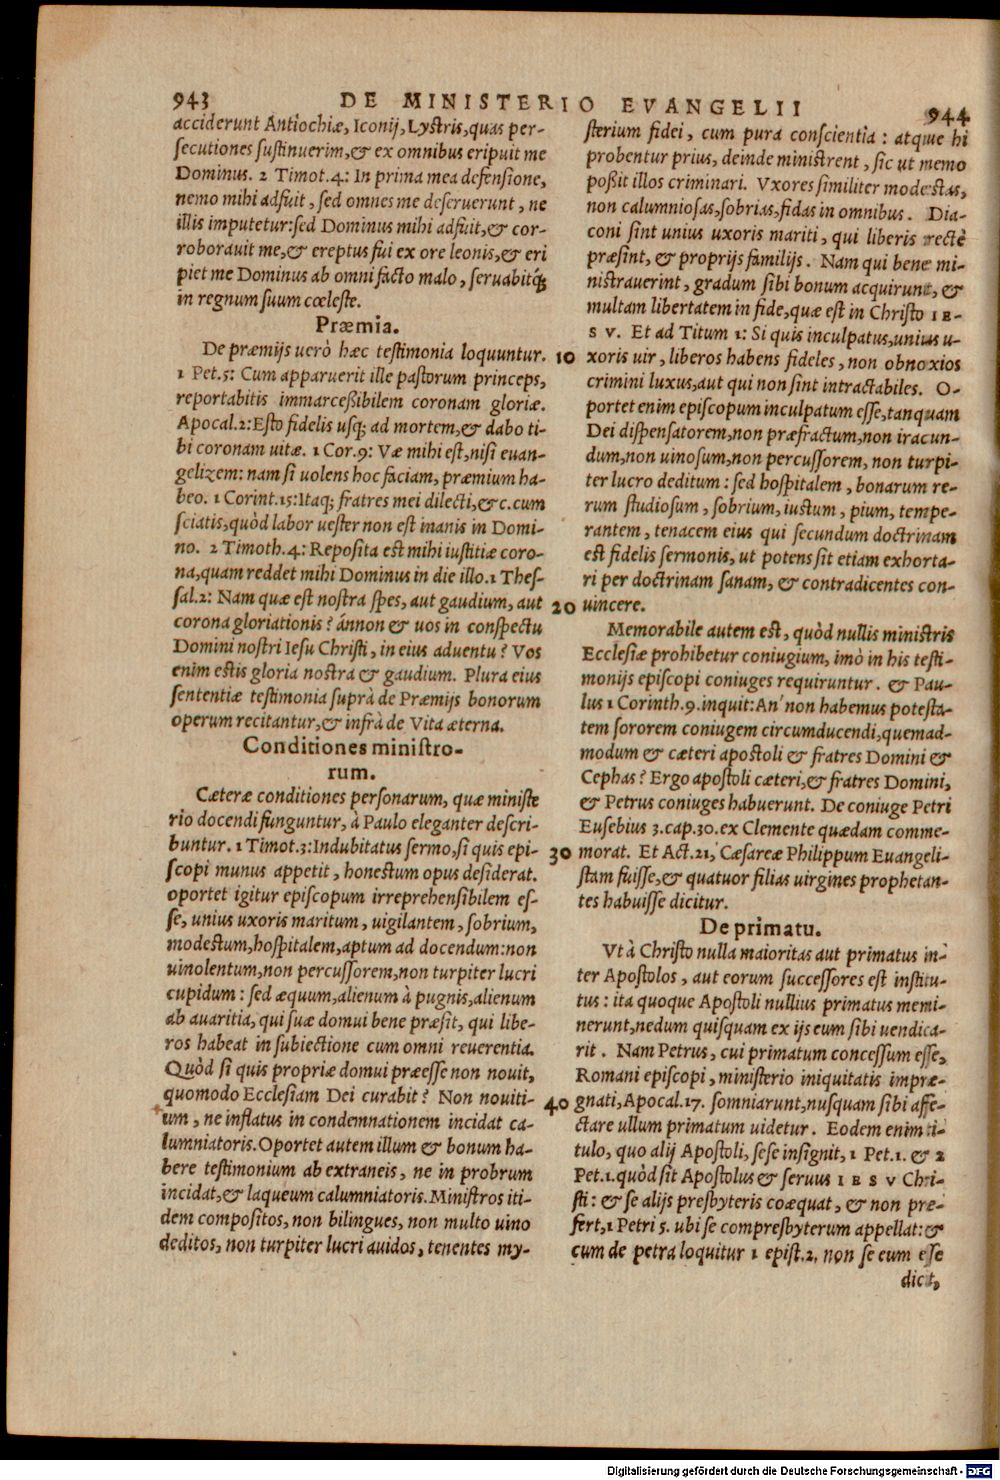 943 DE MINISTERIO EVANGELII 944
acciderunt Antiochiæ, Iconij, Lystris, quas per-
secutiones sustinuerim, & ex omnibus eripuit me
Dominus. 2 Timot. 4: In prima mea defensione,
nemo mihi adfuit, sed omnes me deseruerunt, ne
illis imputetur: sed Dominus mihi adfuit, & cor-
roborauit me, & ereptus fui ex ore leonis, & eri
piet me Dominus ab omni facto malo, seruabitq́;
in regnum suum cœleste.
Præmia.
De præmijs uerò hæc testimonia loquuntur.
1 Pet. 5: Cum apparuerit ille pastorum princeps,
reportabitis immarceßibilem coronam gloriæ.
Apocal. 2: Esto fidelis usq; ad mortem, & dabo ti-
bi coronam uitæ. 1 Cor. 9: Væ mihi est, nisi euan-
gelizem: nam si uolens hoc faciam, præmium ha-
beo. 1 Corint. 15: Itaq; fratres mei dilecti, &c. cum
sciatis, quòd labor uester non est inanis in Domi-
no. 2 Timoth. 4: Reposita est mihi iustitiæ coro-
na, quam reddet mihi Dominus in die illo. 1 Thes-
sal. 2: Nam quæ est nostra spes, aut gaudium, aut
corona gloriationis? ánnon & uos in conspectu
Domini nostri Iesu Christi, in eius aduentu? Vos
enim estis gloria nostra & gaudium. Plura eius
sententiæ testimonia suprà de Præmijs bonorum
operum recitantur, & infrà de Vita æterna.
Conditiones ministro-
rum.
Cæteræ conditiones personarum, quæ ministe
rio docendi funguntur, à Paulo eleganter descri-
buntur. 1 Timot. 3: Indubitatus sermo, si quis epi-
scopi munus appetit, honestum opus desiderat.
oportet igitur episcopum irreprehensibilem es-
se, unius uxoris maritum, uigilantem, sobrium,
modestum, hospitalem, aptum ad docendum: non
uinolentum, non percussorem, non turpiter lucri
cupidum: sed æquum, alienum à pugnis, alienum
ab auaritia, qui suæ domui bene præsit, qui libe-
ros habeat in subiectione cum omni reuerentia.
Quòd si quis propriæ domui præesse non nouit,
quomodo Ecclesiam Dei curabit? Non nouiti-
um, ne inflatus in condemnationem incidat ca-
lumniatoris. Oportet autem illum & bonum ha-
bere testimonium ab extraneis, ne in probrum
incidat, & laqueum calumniatoris. Ministros iti-
dem compositos, non bilingues, non multo uino
deditos, non turpiter lucri auidos, tenentes my-
sterium fidei, cum pura conscientia: atque hi
probentur prius, deinde ministrent, sic ut memo
poßit illos criminari. Vxores similiter modestas,
non calumniosas, sobrias, fidas in omnibus. Dia-
coni sint unius uxoris mariti, qui liberis rectè
præsint, & proprijs familijs. Nam qui bene mi-
nistrauerint, gradum sibi bonum acquirunt, &
multam libertatem in fide, quæ est in Christo IE-
SV. Et ad Titum 1: Si quis inculpatus, unius u-
10 xoris uir, liberos habens fideles, non obnoxios
crimini luxus, aut qui non sint intractabiles. O-
portet enim episcopum inculpatum esse, tanquam
Dei dispensatorem, non præfractum, non iracun-
dum, non uinosum, non percussorem, non turpi-
ter lucro deditum: sed hospitalem, bonarum re-
rum studiosum, sobrium, iustum, pium, tempe-
rantem, tenacem eius qui secundum doctrinam
est fidelis sermonis, ut potens sit etiam exhorta-
ri per doctrinam sanam, & contradicentes con-
20 uincere.
Memorabile autem est, quòd nullis ministris
Ecclesiæ prohibetur coniugium, imò in his testi-
monijs episcopi coniuges requiruntur. & Pau-
lus 1 Corinth. 9. inquit: An' non habemus potesta-
tem sororem coniugem circumducendi, quemad-
modum & cæteri apostoli & fratres Domini &
Cephas? Ergo apostoli cæteri, & fratres Domini,
& Petrus coniuges habuerunt. De coniuge Petri
Eusebius 3. cap. 30. ex Clemente quædam comme-
30 morat. Et Act. 21, Cæsareæ Philippum Euangeli-
stam fuisse, & quatuor filias uirgines prophetan-
tes habuisse dicitur.
De primatu.
Vt à Christo nulla maioritas aut primatus in-
ter Apostolos, aut eorum successores est institu-
tus: ita quoque Apostoli nullius primatus memi-
nerunt, nedum quisquam ex ijs eum sibi uendica-
rit. Nam Petrus, cui primatum concessum esse,
Romani episcopi, ministerio iniquitatis impræ-
40 gnati, Apocal. 17. somniarunt, nusquam sibi affe-
ctare ullum primatum uidetur. Eodem enim ti-
tulo, quo alij Apostoli, sese insignit, 1 Pet. 1. & 2
Pet. 1. quòd sit Apostolus & seruus IESV Chri-
sti: & se alijs presbyteris coæquat, & non præ-
fert, 1 Petri 5. ubi se compresbyterum appellat: &
cum de petra loquitur 1 epist. 2, non se eum esse
dicit,
Digitalisierung gefördert durch die Deutsche Forschungsgemeinschaft - DFG